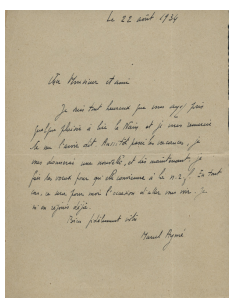 Le 22 août 1934
Cher Monsieur et ami
Je suis tout heureux que vous ayez pris
quelque plaisir à lire le Nain, et je vous remercie
de me l'avoir dit. Aussitôt passé les vacances, je
vous donnerai une nouvelle, et dès maintenant, je
fais des vœux pour qu'elle convienne à la n.r.f. En tout
cas, ce sera pour moi l'occasion d'aller vous voir. Je
m'en réjouis déjà.
Bien fidèlement vôtre
Marcel Aymé